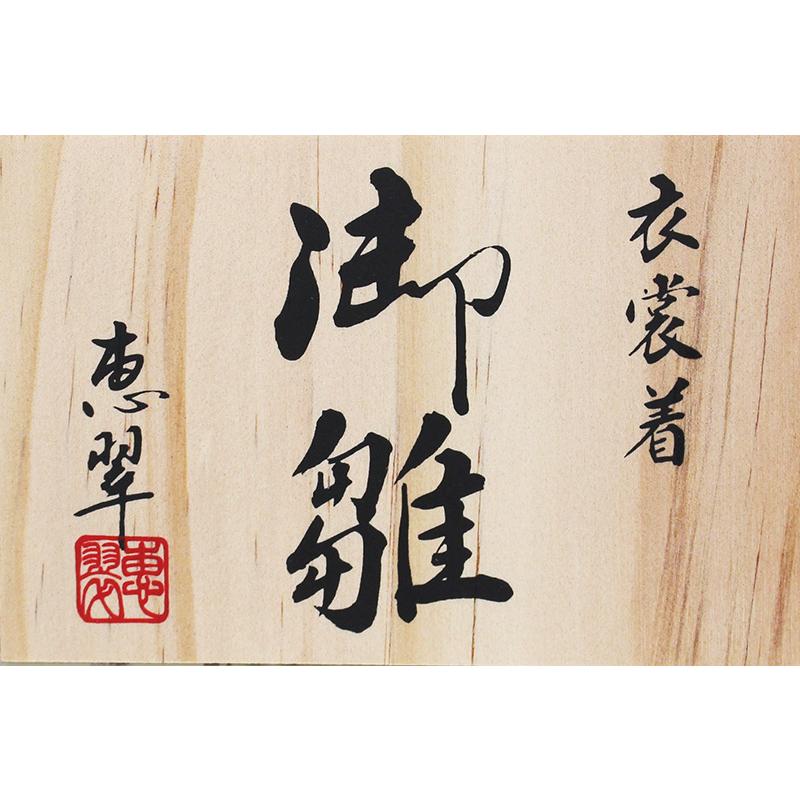 衣裳着
御雛
恵翠
恵翠